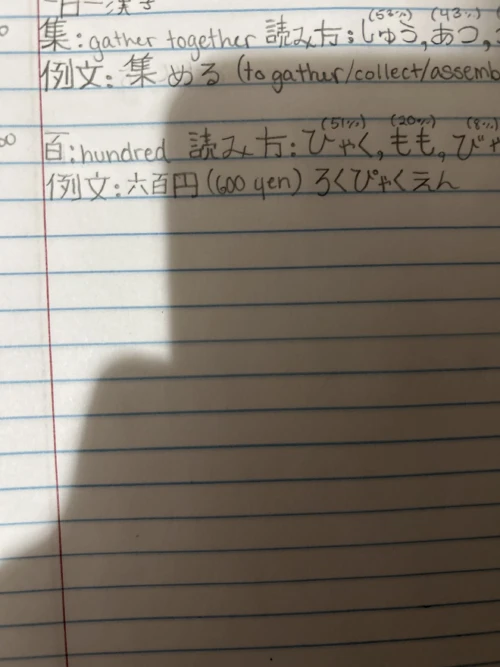 一日一漢字
集:gather together 読み方:じゅう,あつ,
(52%) (43%)
例文:集める (to gather/collect/assemb
百:hundred 読み方:ひゃく,もも,びゃ
(51%) (20%) (8%)
例文:六百円(600 yen) ろくぴゃくえん